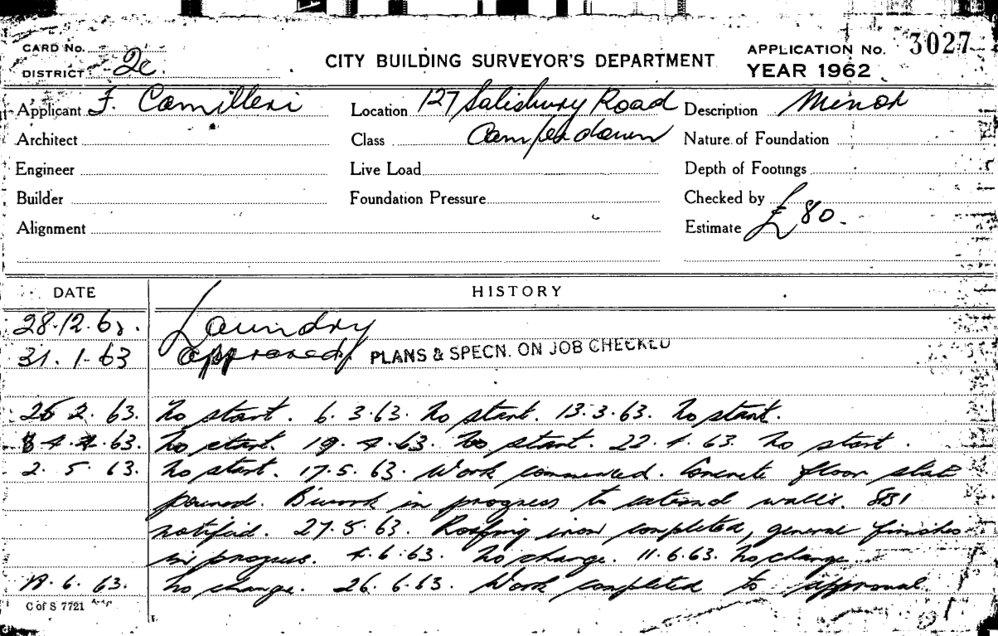 CARD No.
DISTRICT 2c.
CITY BUILDING SURVEYOR'S DEPARTMENT
APPLICATION No. 3027
YEAR 1962
Applicant F. Camilleri Location 127 Salisbury Road Description Minor
Architect Class Camperdown Nature of Foundation
Engineer Live Load Depth of Footings
Builder Foundation Pressure Checked by
Alignment Estimate £80.
DATE HISTORY
28.12.62. Laundry
31.1.63 approved PLANS & SPECN. ON JOB CHECKED
25 2. 63. No start. 6. 3.63. No start. 13.3.63. No start.
4. 63. No start. 19. 4.63. No start. 22. 4. 63 No start.
2. 5. 63. No start. 17.5. 63. Work commenced. Concrete floor slab
poured. Bwork in progress to external walls. SBI
notified. 27.5.63. Roofing iron completed, general finishes
in progress. 4.6.63. No change. 11.6.63. No change
18. 6. 63. No change. 26.6.63. Work completed to approval.
C of S 7721